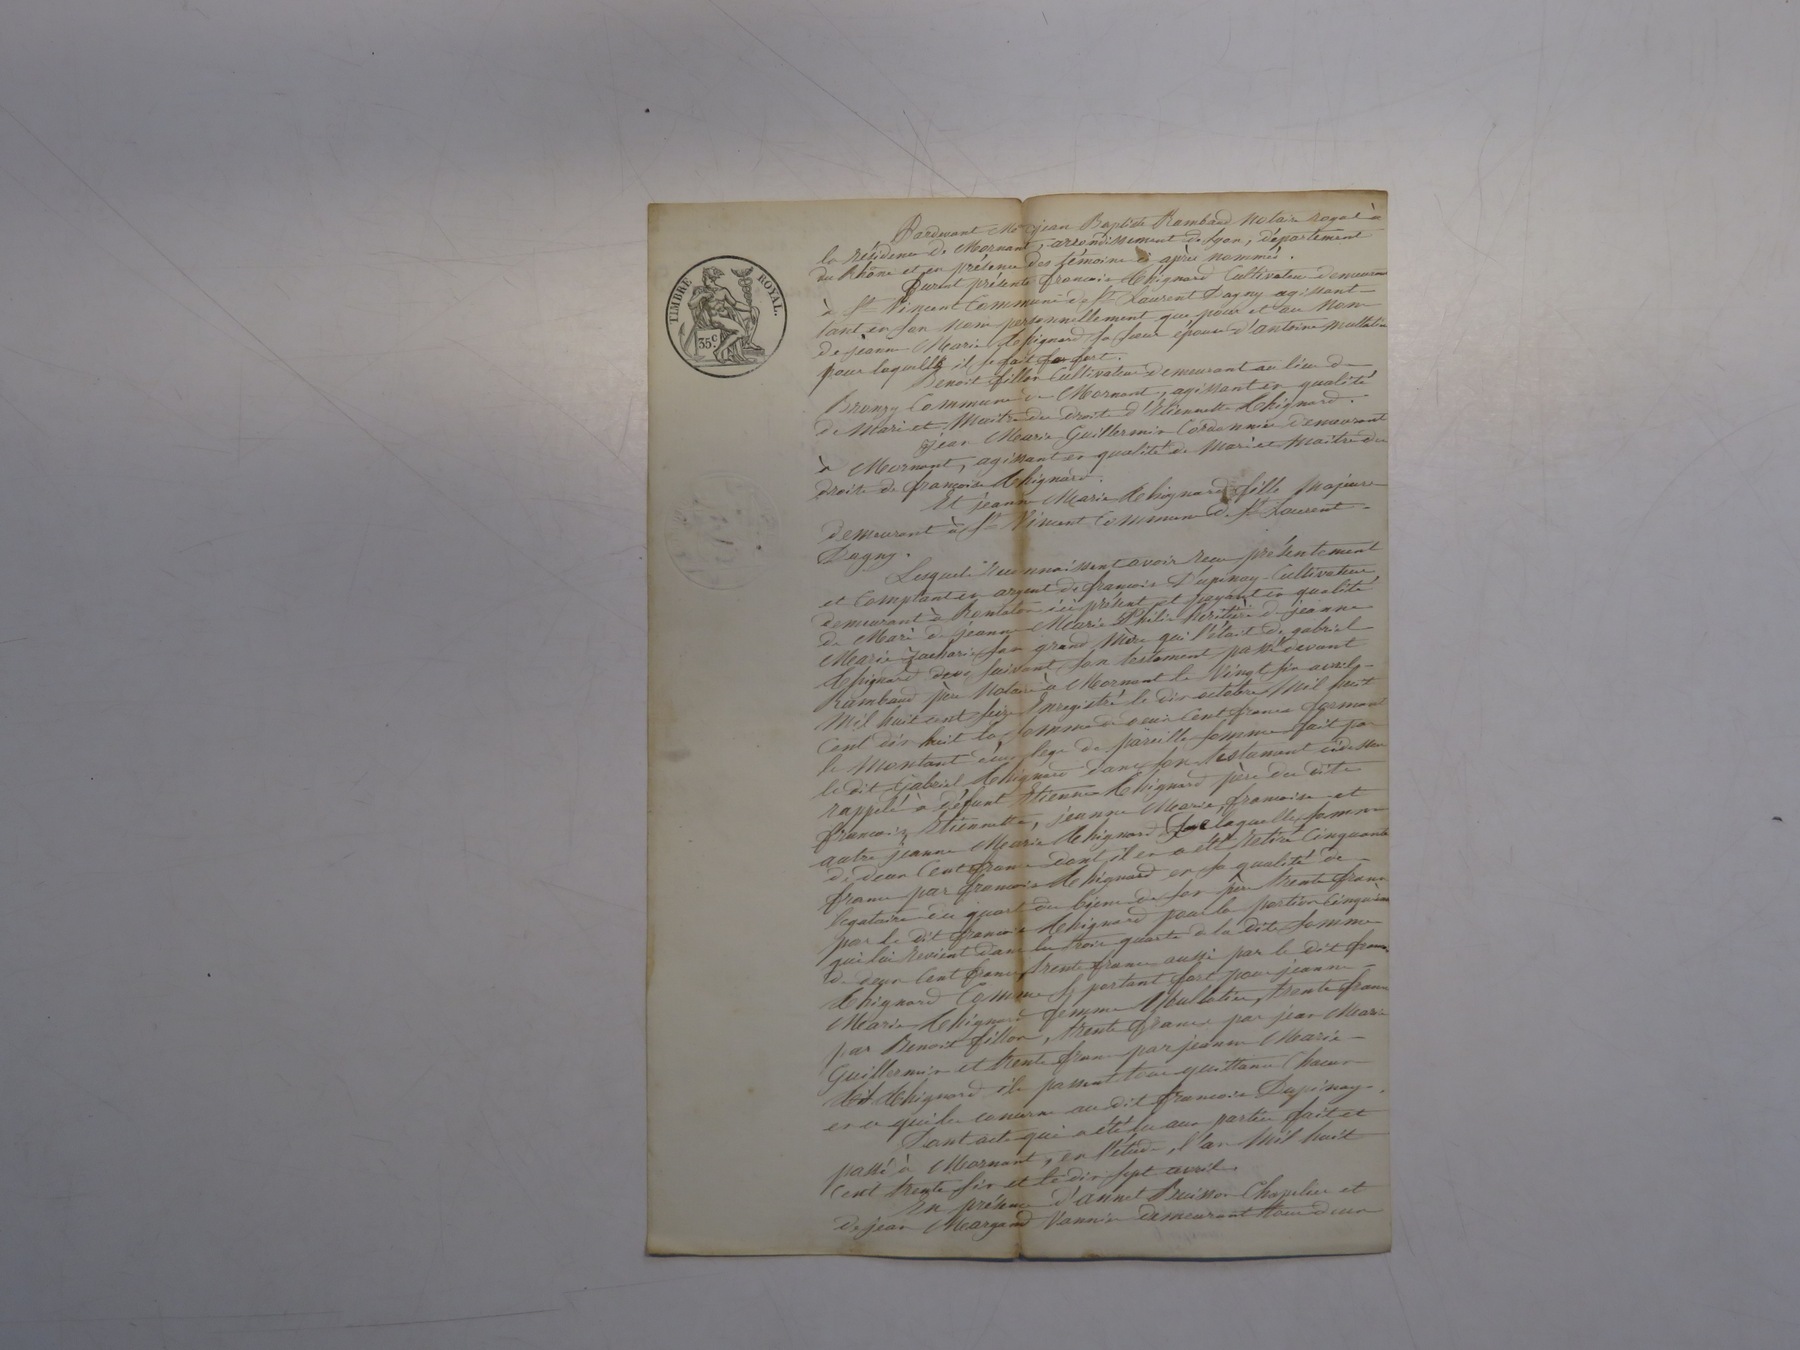 TIMBRE ROYAL.
35c.
Pardevant Me jean Baptiste Rambaud Notaire royal à
la résidence de Mornant, arrondissement de Lyon, département
du Rhône et en présence des témoins ci après nommés.
Furent présents françois Chignard Cultivateur demeurant
à St Vincent Commune de St Laurent Dagny agissant
tant en son nom personnellement que pour et au nom
de jeanne Marie Chignard sa sœur épouse d'antoine
pour laquelle il se fait fort.
Benoit fillon Cultivateur demeurant au lieu de
Commune de Mornant, agissant en qualité
de Mari et Maitre des droits d'Etiennette Chignard.
jean Marie Guillermin Cordonnier demeurant
à Mornant, agissant en qualité de Mari et Maitre des
droits de françoise Chignard.
Et jeanne Marie Chignard fille Majeure
demeurant à St Vincent Commune de St Laurent
Dagny.
Lesquels reconnaissent avoir reçu présentement
et Comptant en argent de françois Dupinay Cultivateur
demeurant à Rontalon ici présent et payant en qualité
de Mari de jeanne Marie héritière de jeanne
Marie Zacharie sa grand Mère qui l'était de gabriel
Chignard suivant son testament passé devant
Rambaud père Notaire à Mornant le Vingt six avril
Mil huit cent seize Enregistré le dix octobre Mil huit
Cent dix huit la somme de deux Cent francs formant
le Montant du legs de pareille somme fait par
le dit Gabriel Chignard dans son testament cidessus
rappelé à défunt Etienne Chignard père des dits
françois, Etiennette, jeanne Marie, françoise et
autre jeanne Marie Chignard Sur laquelle somme
de deux Cent francs dont il en a été retiré Cinquante
francs par françois Chignard en sa qualité de
legataire du quart des biens de son père trente francs
par le dit françois Chignard pour la portion Cinquième
qui lui revient dans les trois quarts de la dite somme
de deux Cent francs, trente francs aussi par le dit françois
Chignard Comme se portant fort pour jeanne
Marie Chignard femme, trente francs
par Benoit fillon, trente francs par jean Marie
Guillermin et trente francs par jeanne Marie
Chignard ils passent tous quittance Chacun
en ce qui les concerne au dit françois Dupinay.
Dont acte qui a été lu aux parties fait et
passé à Mornant, en l'étude, l'an Mil huit
Cent trente six et le dix sept avril,
En présence d'annet Buisson Chapelier et
de jean Margand Vannier demeurant tous deux